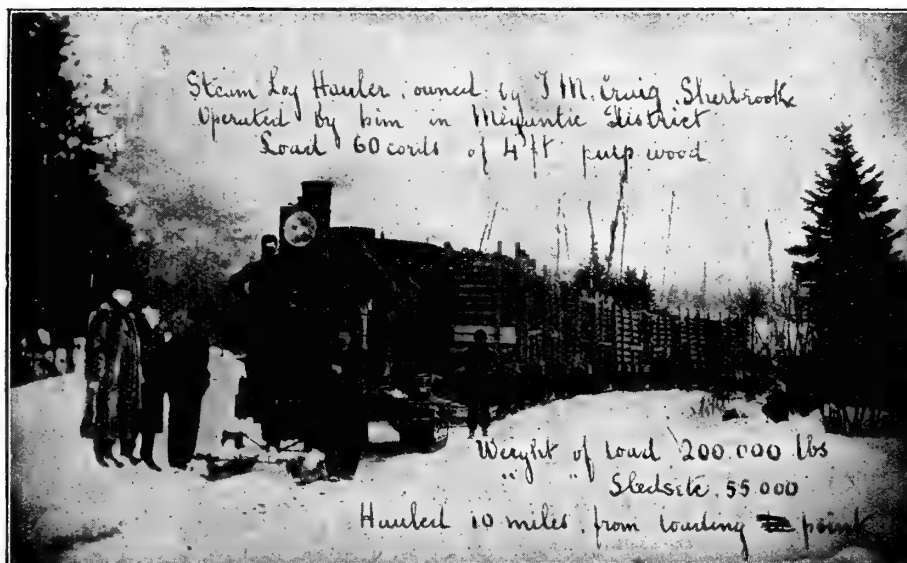 Steam Log Hauler, owned by T M. Craig, Sherbrooke
Operated by him in Megantic District
Load 60 cords of 4 ft pulp wood
Weight of Load 200.000 lbs
" " Sleds etc. 55.000
Hauled 10 miles, from loading point